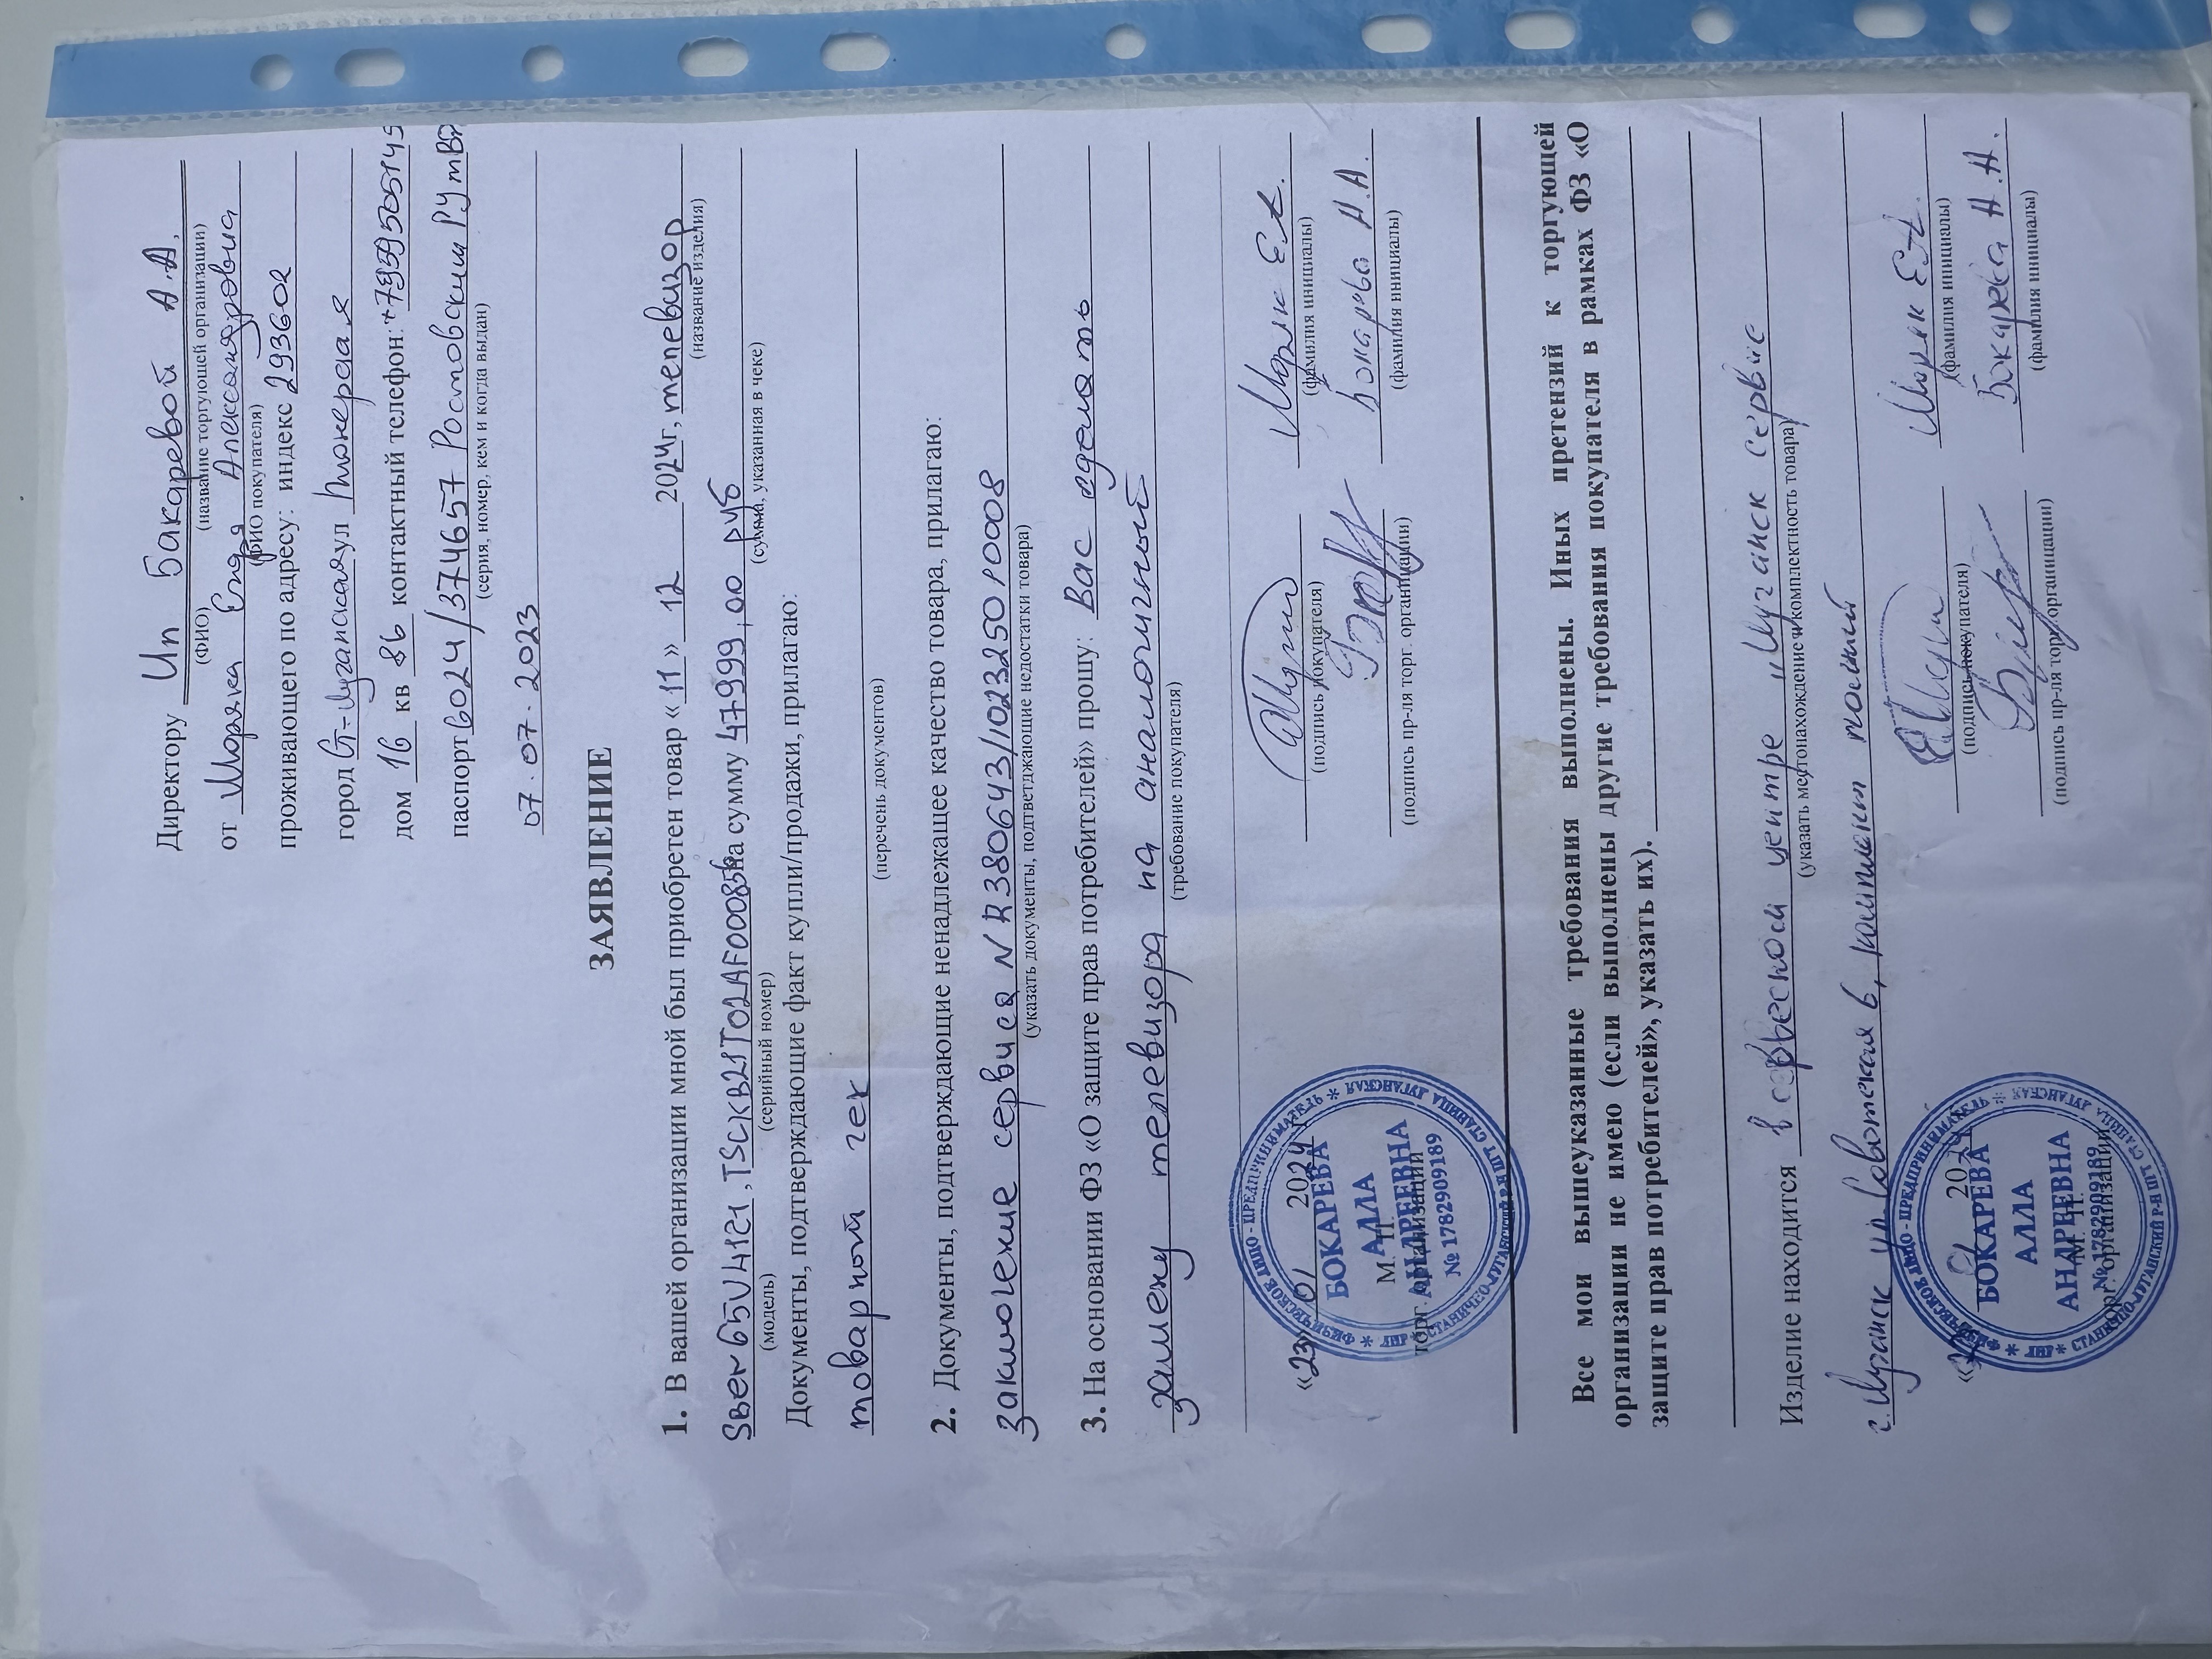 Директору Ип Бакаревой А.А.
(ФИО) (название торгующей организации)
от Моряка Александровна
(ФИО покупателя)
проживающего по адресу: индекс 293602
город Ст-Луганская ул Пионерская
дом 16 кв 86 контактный телефон:
паспорт 6024/374657 Ростовским
(серия, номер, кем и когда выдан)
07.07.2023
ЗАЯВЛЕНИЕ
1. В вашей организации мной был приобретен товар «11» 12 2024г, телевизор
(название изделия)
Sber 65V4121, на сумму 47999,00 руб
(модель) (серийный номер) (сумма, указанная в чеке)
Документы, подтверждающие факт купли/продажи, прилагаю:
товарный чек
(перечень документов)
2. Документы, подтверждающие ненадлежащее качество товара, прилагаю:
заключение сервиса N R380643/1023250,0008
(указать документы, подтверждающие недостатки товара)
3. На основании ФЗ «О защите прав потребителей» прошу: Вас сделать
замену телевизора на аналогичный
(требование покупателя)
«23» 01 2024 Моряк Е.А.
(подпись покупателя) (фамилия инициалы)
М. П. Бокарева А.А.
торг. организации (подпись пр-ля торг. организации) (фамилия инициалы)
ФИЗИЧЕСКОЕ ЛИЦО - ПРЕДПРИНИМАТЕЛЬ * СТАНИЦА ЛУГАНСКАЯ * СТАНИЧНО-ЛУГАНСКИЙ Р-Н ПГТ * ЛНР *
БОКАРЕВА
АЛЛА
АНДРЕЕВНА
№ 1782909189
Все мои вышеуказанные требования выполнены. Иных претензий к торгующей
организации не имею (если выполнены другие требования покупателя в рамках ФЗ «О
защите прав потребителей», указать их).
Изделие находится в сервисном центре "Луганск сервис
(указать местонахождение и комплектность товара)
г. Луганск ул Советская 6, комплект полный
20 Моряк Е.А.
(подпись покупателя) (фамилия инициалы)
М. П. Бокарева А.А.
торг. организации (подпись пр-ля торг. организации) (фамилия инициалы)
ФИЗИЧЕСКОЕ ЛИЦО - ПРЕДПРИНИМАТЕЛЬ * СТАНИЦА ЛУГАНСКАЯ * СТАНИЧНО-ЛУГАНСКИЙ Р-Н ПГТ * ЛНР *
БОКАРЕВА
АЛЛА
АНДРЕЕВНА
№ 1782909189